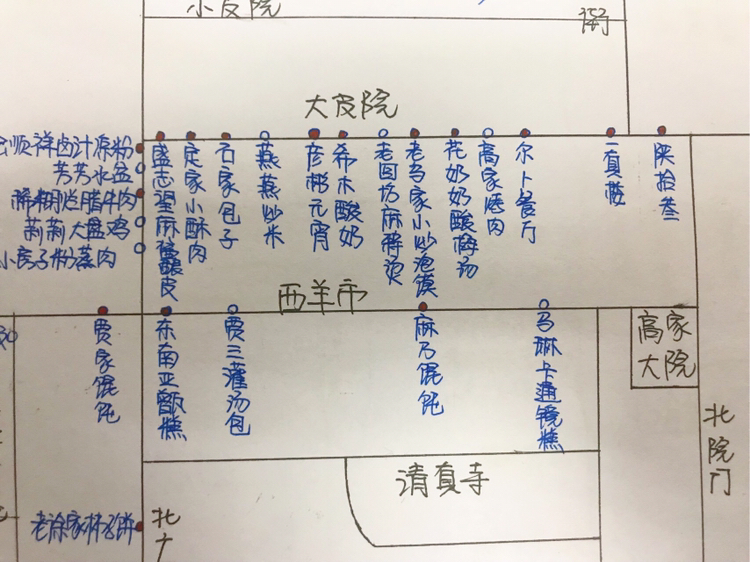 小皮院
街
大皮院
顺祥卤汁凉粉
芳芳水盆
稀糊烂腊牛肉
莉莉大盘鸡
小房子粉蒸肉
盛志望麻酱酿皮
定家小酥肉
石家包子
燕燕炒米
彦彬元宵
希木酸奶
老回坊麻辣烫
老马家小炒泡馍
花奶奶酸梅汤
高家烤肉
尔卜餐厅
一真楼
陕拾叁
西羊市
贾家馄饨
东南亚甑糕
贾三灌汤包
麻乃馄饨
马琳卡通镜糕
高家
大院
北院门
清真寺
老徐家柿子饼
北